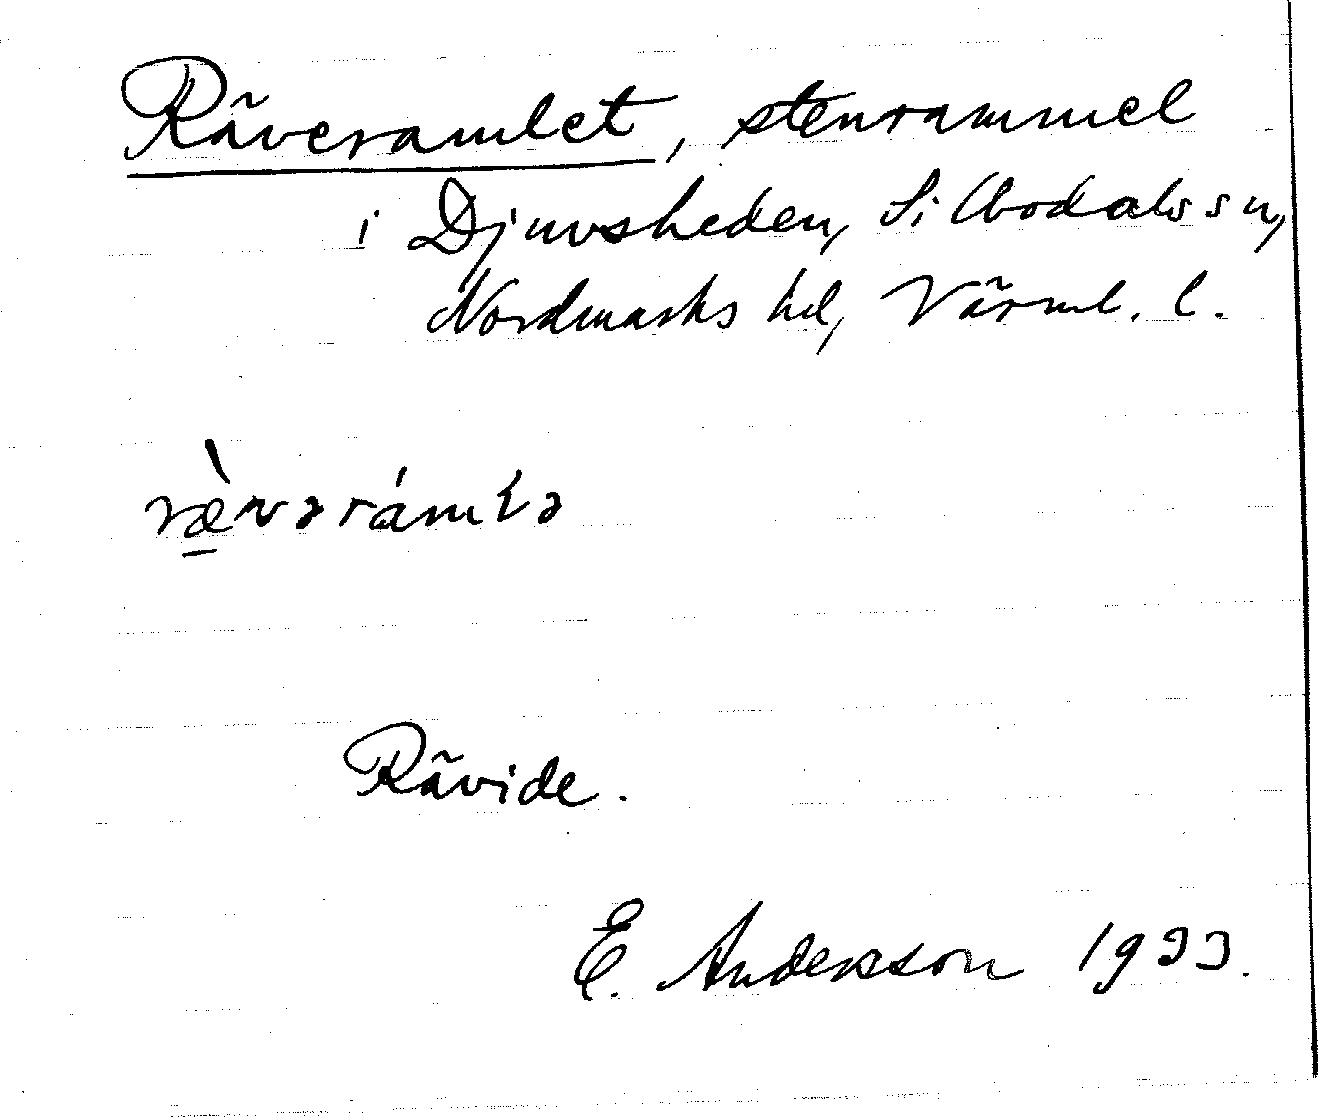 Räveramlet, stenrammel
i Djuvsheden, Silbodals sn,
Nordmarks hd, Värml. l.
ræ̀vərámłə
Rävide.
E. Andersson 1933.